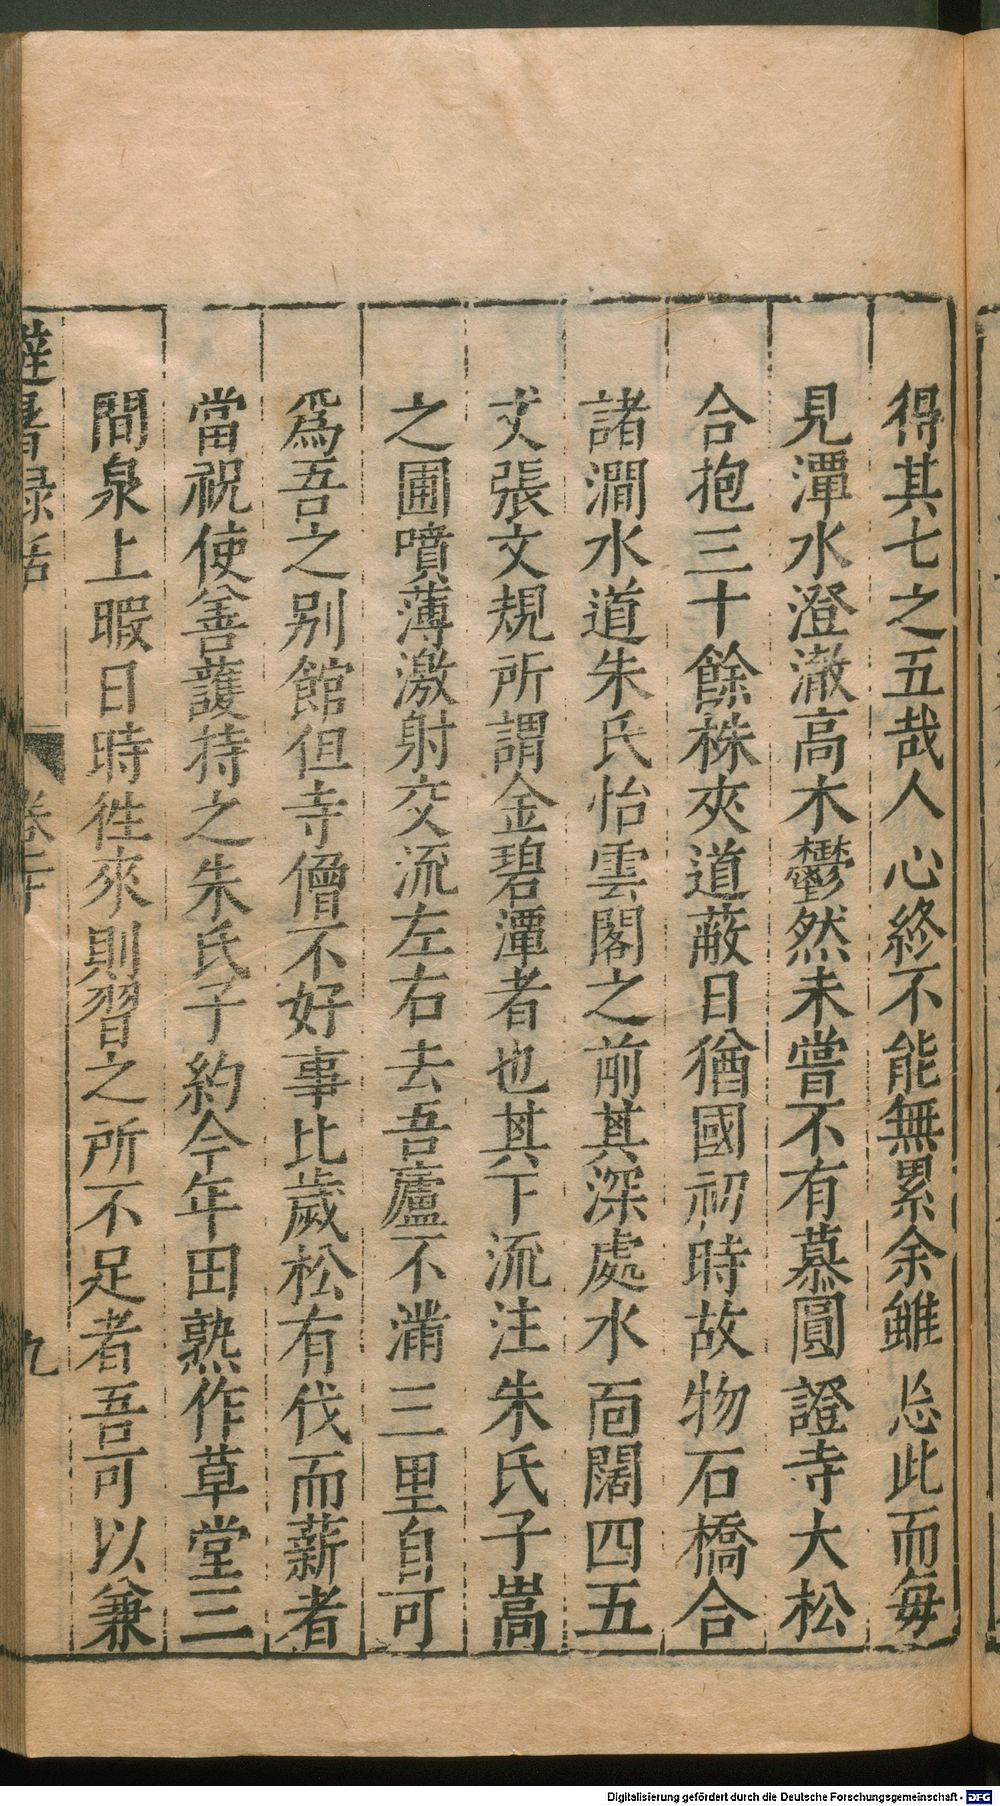 得其七之五哉人心終不能無累余雖忘此而每
見潭水澄澈高木鬱然未嘗不有慕圓證寺大松
合抱三十餘株夾道蔽日猶國初時故物石橋合
諸澗水道朱氏怡雲閣之前其深處水面闊四五
丈張文規所謂金碧潭者也其下流注朱氏子嵩
之圃噴薄激射交流左右去吾廬不滿三里自可
爲吾之別館但寺僧不好事比歲松有伐而薪者
當祝使善護持之朱氏子約今年田熟作草堂三
間泉上暇日時徃來則習之所不足者吾可以兼
避暑録話 卷二十 九
Digitalisierung gefördert durch die Deutsche Forschungsgemeinschaft - DFG